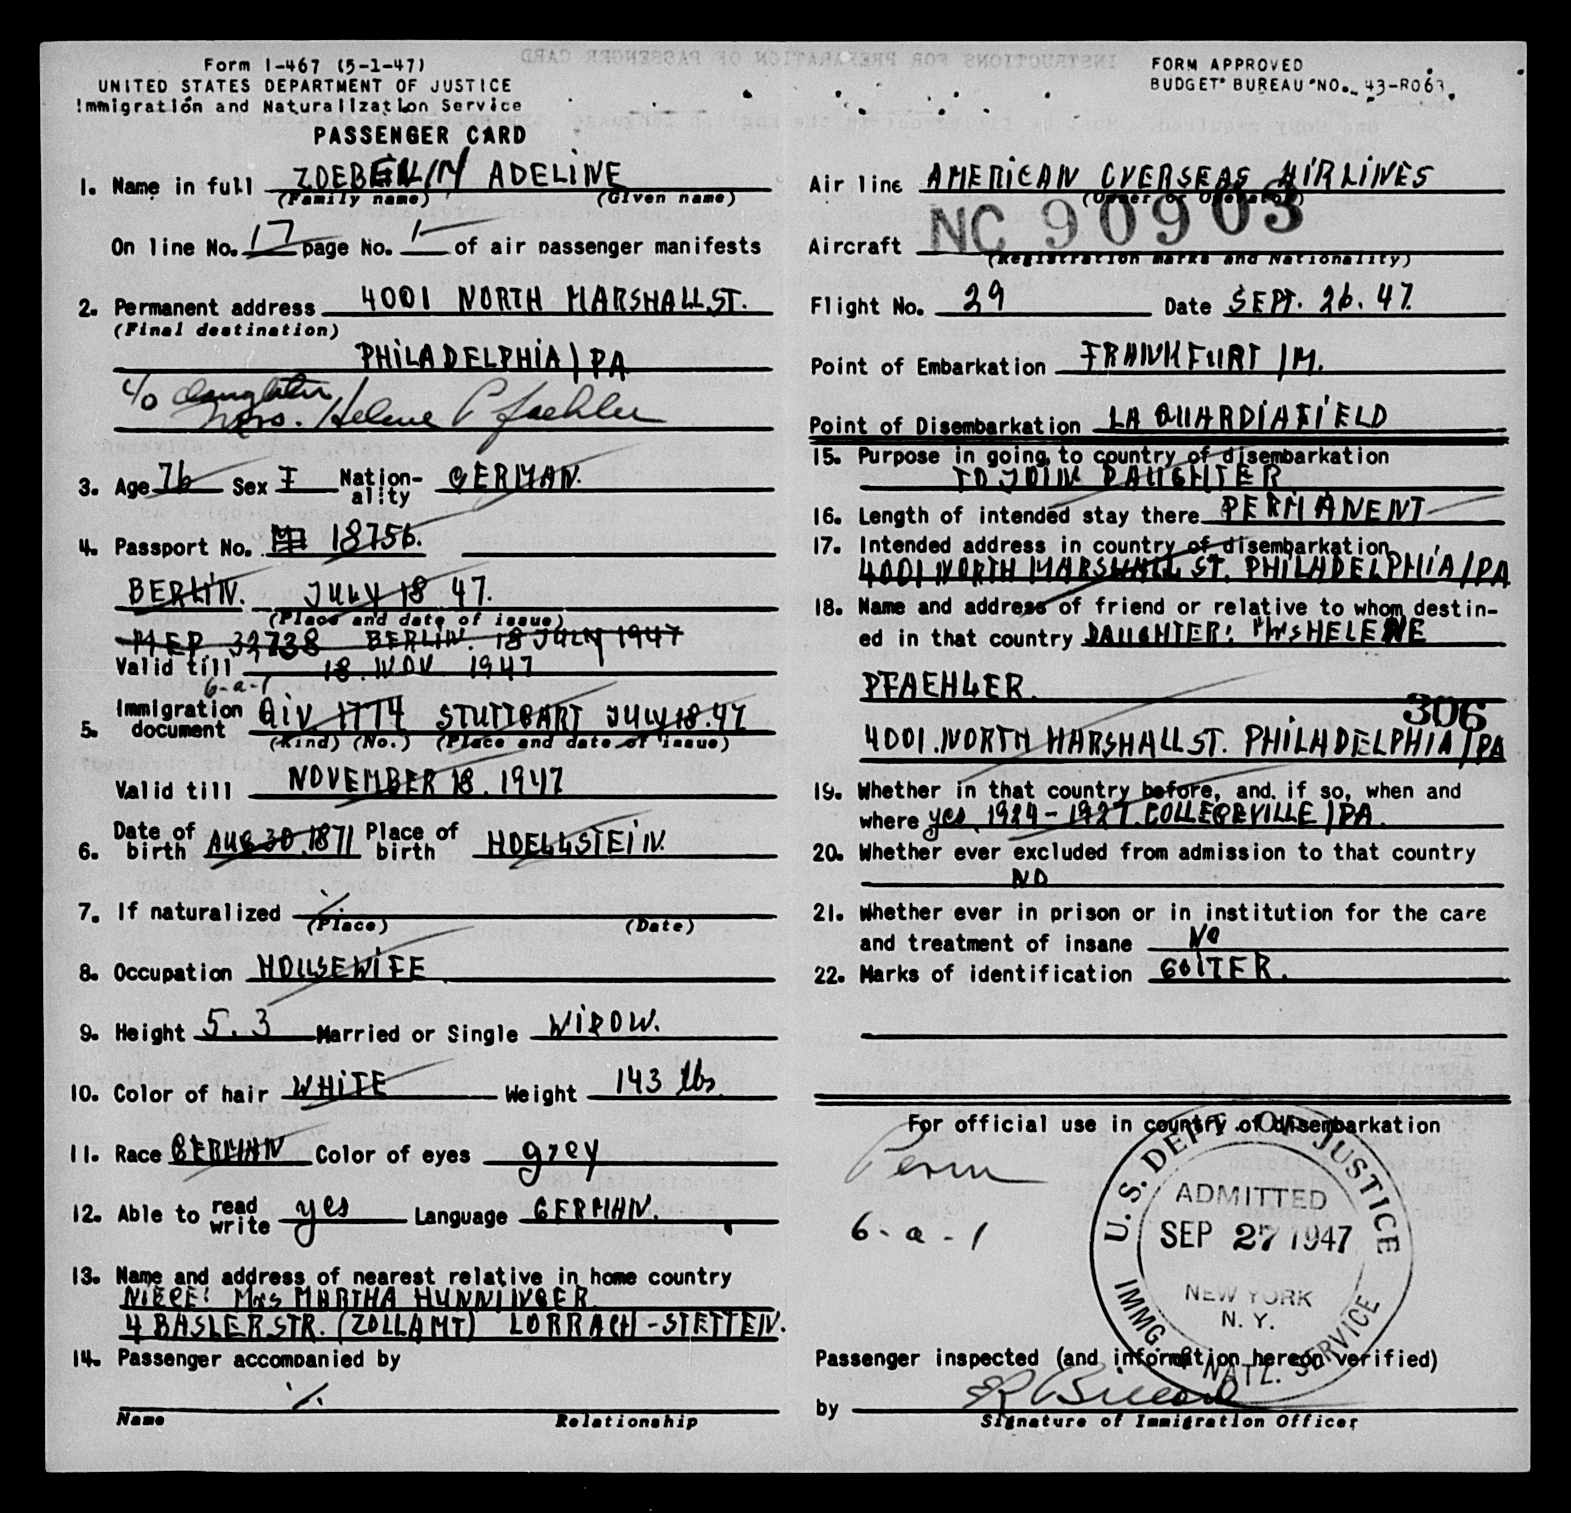 Form I-467 (5-1-47)
UNITED STATES DEPARTMENT OF JUSTICE
Immigration and Naturalization Service
PASSENGER CARD
FORM APPROVED
BUDGET BUREAU NO. 43-R063.
1. Name in full ZOEBELIN ADELINE
(Family name) (Given name)
On line No. 17 page No. 1 of air passenger manifests
2. Permanent address 4001 NORTH MARSHALL ST.
(Final destination)
PHILADELPHIA / PA
c/o daughter
Mrs. Helene Pfaehler
3. Age 76 Sex F Nation-ality GERMAN.
4. Passport No. 18756.
BERLIN. JULY 18 47.
(Place and date of issue)
MEP 32738 BERLIN. 18 JULY 1947
Valid till 18. NOV. 1947
6-a-1
5. Immigration document QIV 1774 STUTTGART JULY 18.47
(Kind) (No.) (Place and date of issue)
Valid till NOVEMBER 18. 1947
6. Date of birth AUG 30.1871 Place of birth HOELLSTEIN.
7. If naturalized ./.
(Place) (Date)
8. Occupation HOUSEWIFE
9. Height 5.3 Married or Single WIDOW.
10. Color of hair WHITE Weight 143 lbs
11. Race GERMAN Color of eyes grey
12. Able to read write yes Language GERMAN.
13. Name and address of nearest relative in home country
NIECE: Mrs MARTHA HUNNINGER
4 BASLERSTR. (ZOLLAMT) LORRACH-STETTEN.
14. Passenger accompanied by
./.
Name Relationship
Air line AMERICAN OVERSEAS AIRLINES
(Owner or Operator)
Aircraft NC 90903
(Registration marks and Nationality)
Flight No. 29 Date SEPT. 26. 47.
Point of Embarkation FRANKFURT /M.
Point of Disembarkation LA GUARDIAFIELD
15. Purpose in going to country of disembarkation
TO JOIN DAUGHTER
16. Length of intended stay there PERMANENT
17. Intended address in country of disembarkation
4001 NORTH MARSHALL ST. PHILADELPHIA / PA
18. Name and address of friend or relative to whom destin-
ed in that country DAUGHTER: Mrs HELENE
PFAEHLER.
306
4001.NORTH MARSHALL ST. PHILADELPHIA / PA
19. Whether in that country before, and if so, when and
where yes, 1924-1927. COLLEGEVILLE / PA.
20. Whether ever excluded from admission to that country
NO
21. Whether ever in prison or in institution for the care
and treatment of insane No
22. Marks of identification GOITER.
For official use in country of disembarkation
Perm
6-a-1
U.S. DEPT. OF JUSTICE
ADMITTED
SEP 27 1947
NEW YORK
N. Y.
IMMG. & NATZ. SERVICE
Passenger inspected (and information hereon verified)
by
Signature of Immigration Officer